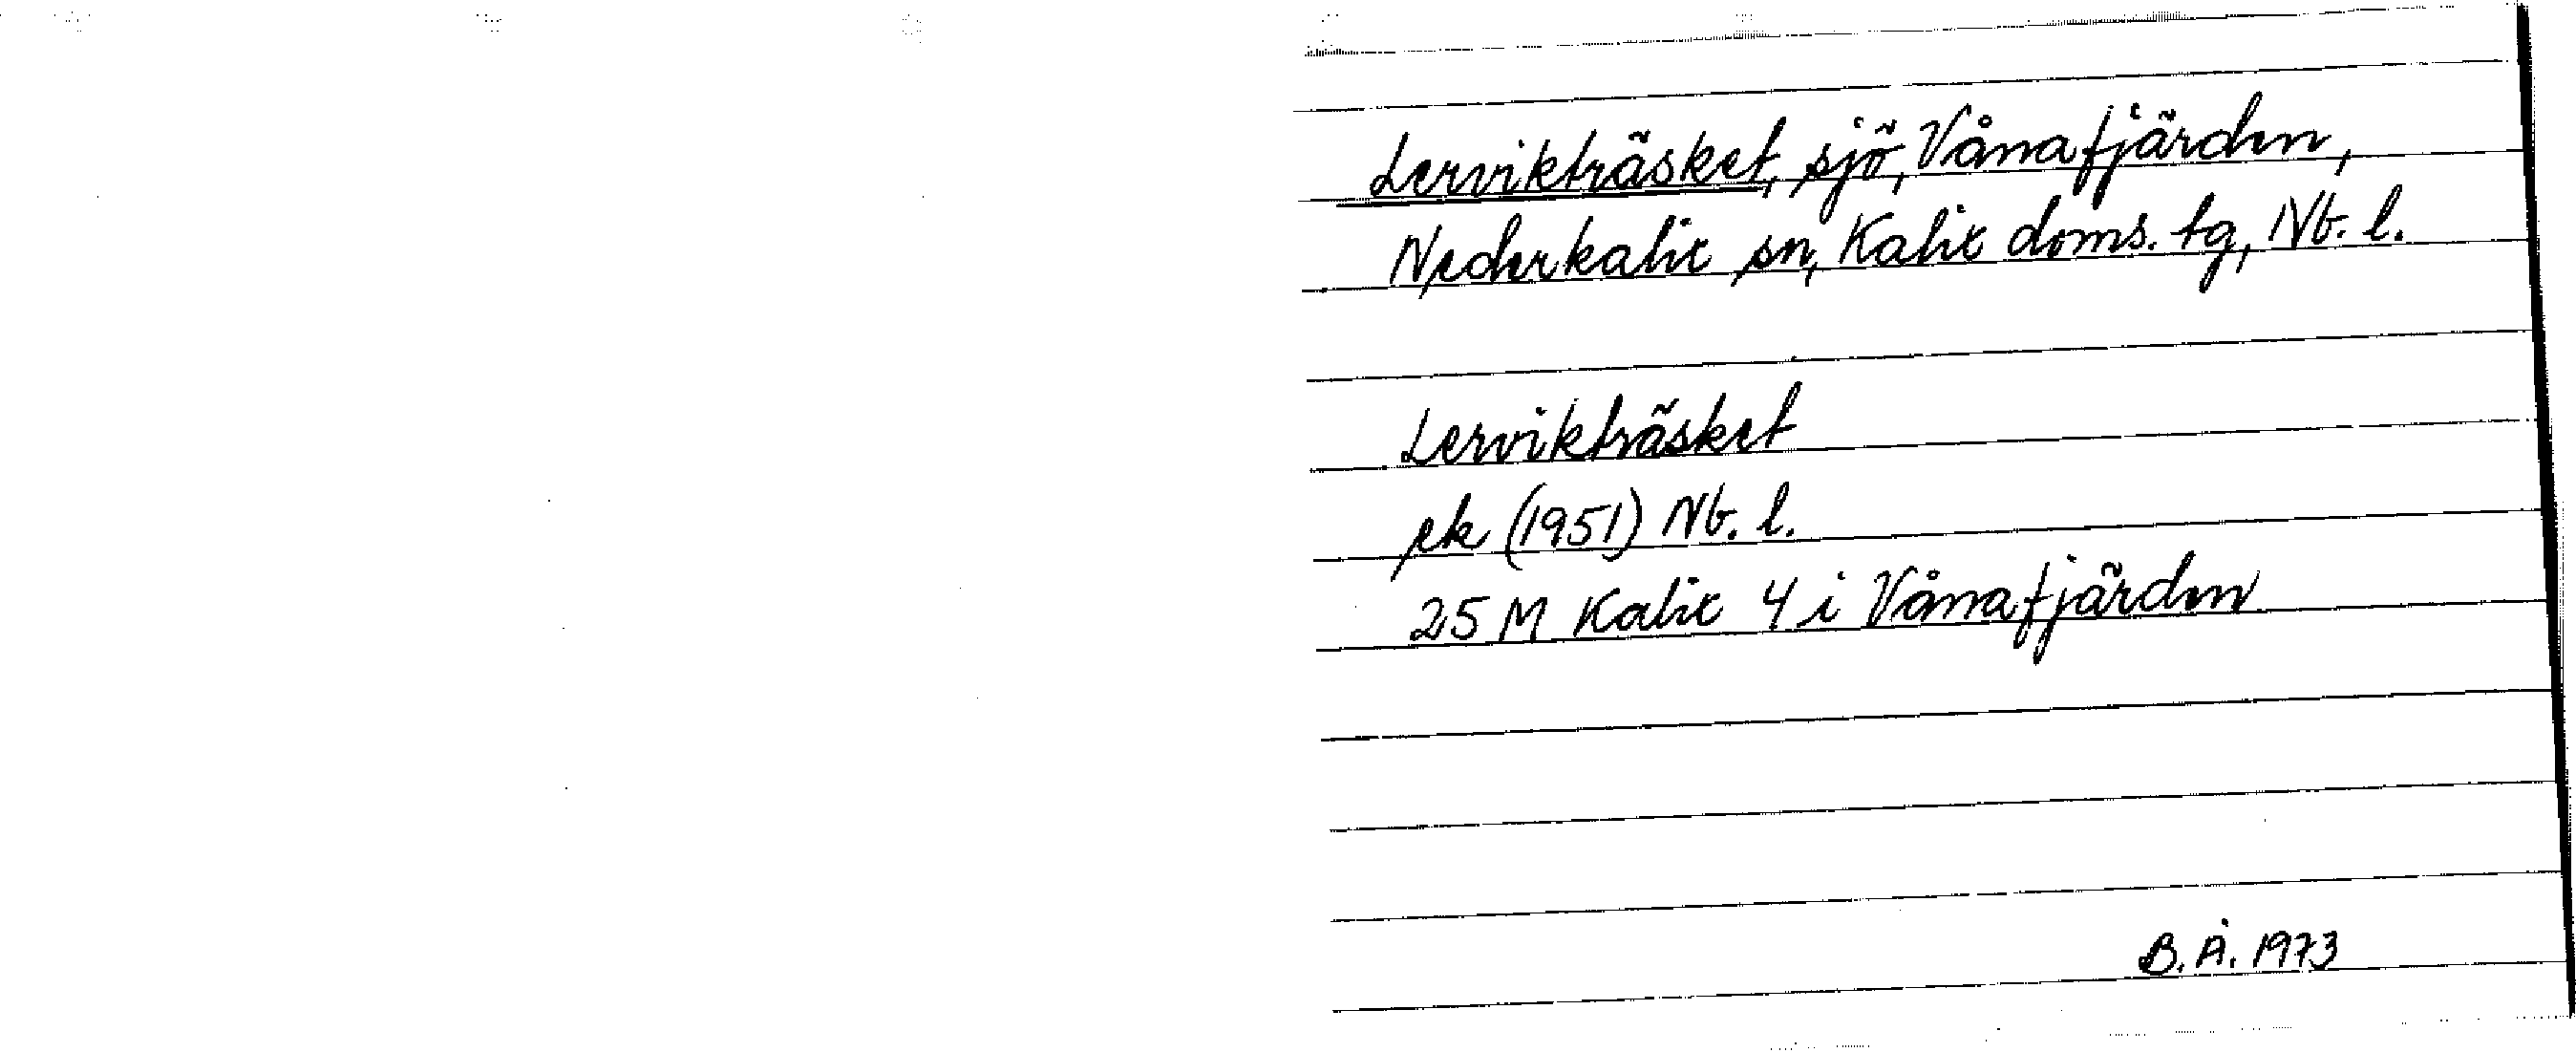 Lervikträsket, sjö, Vånafjärden,
Nederkalix sn, Kalix doms. tg, Nb. l.
Lervikträsket
ek (1951) Nb. l.
25 M Kalix 4 i Vånafjärden
B. Å. 1973